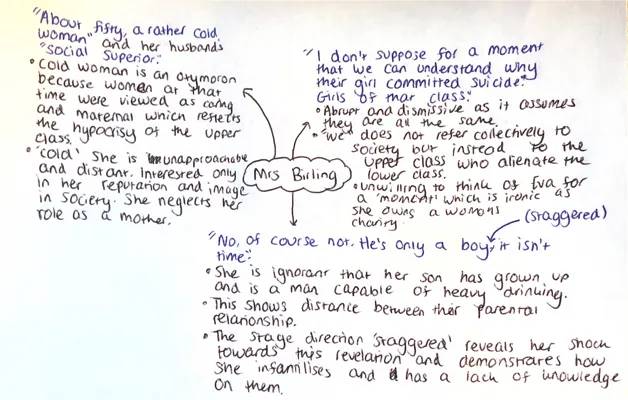 "About fifty, a rather cold
woman" and her husbands
"social superior."
• Cold woman is an oxymoron
because women at that
time were viewed as caring
and maternal which reflects
the hypocrisy of the upper
class.
• 'cold' she is unapproachable
and distant. Interested only
in her reputation and image
in society. She neglects her
role as a mother.
"I don't suppose for a moment
that we can understand why
their girl committed suicide."
Girls of that class."
• Abrupt and dismissive as it assumes
they are all the same.
• "we" does not refer collectively to
society but instead to the
upper class who alienate the
lower class.
• unwilling to think of Eva for
a 'moment' which is ironic as
she owns a womans
charity
Mrs Birling
(staggered)
"No, of course not. He's only a boy, it isn't
time".
• She is ignorant that her son has grown up
and is a man capable of heavy drinking.
• This shows distance between their parental
relationship.
• The stage direction 'staggered' reveals her shock
towards this revelation and demonstrates how
she infantilises and has a lack of knowledge
on them.